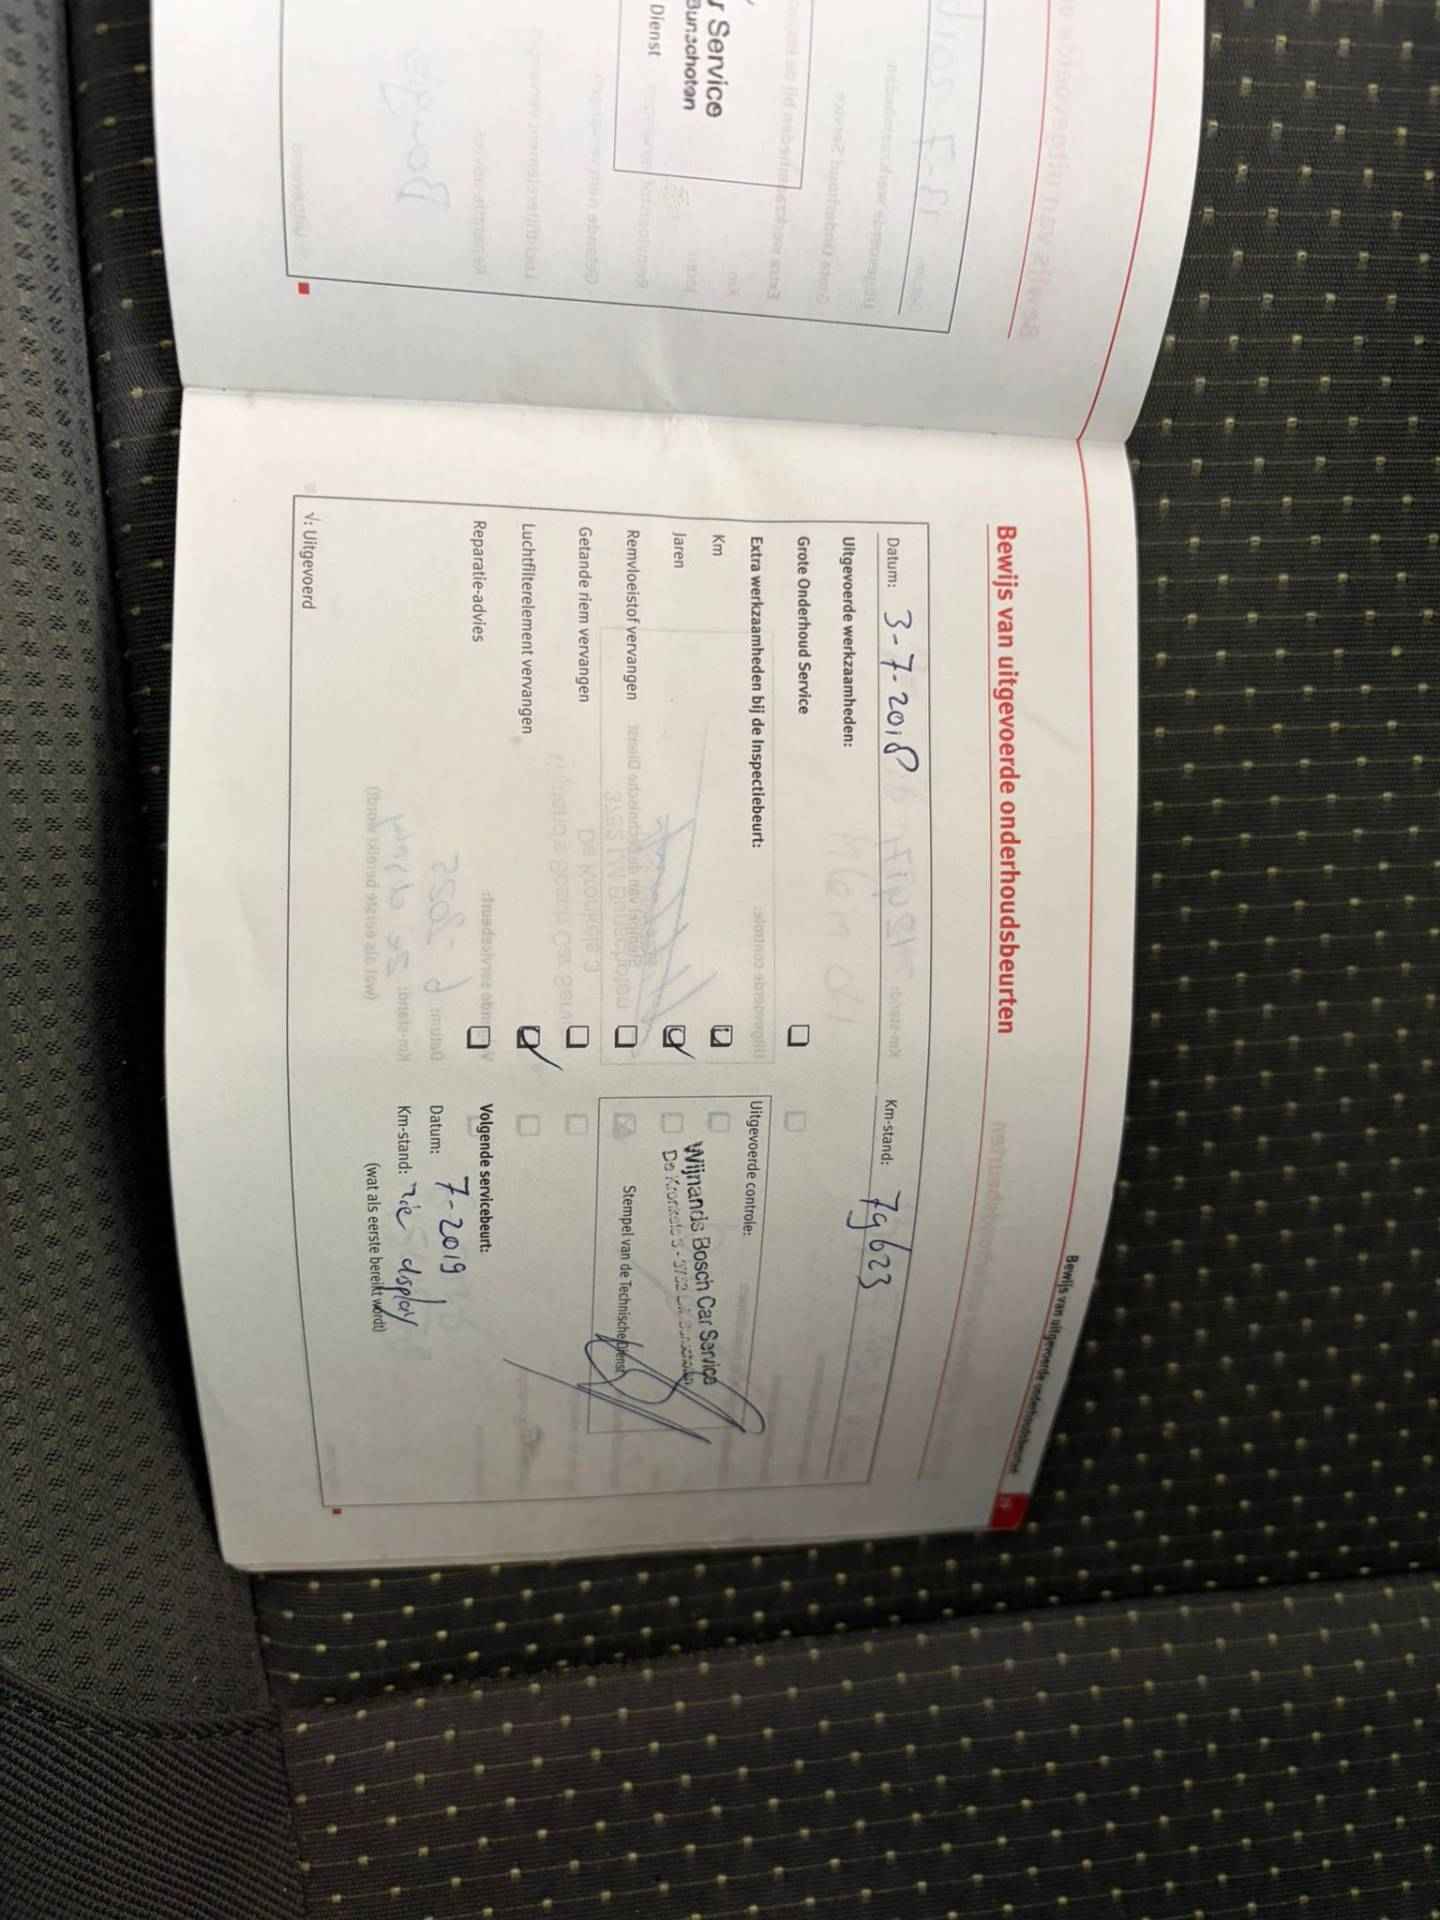 r Service
Bunschoten
Dienst
Bewijs van uitgevoerde onderhoudsbeurten
Bewijs van uitgevoerde onderhoudsbeurten
Datum: 3-7-2018
Km-stand: 79623
Uitgevoerde werkzaamheden:
Grote Onderhoud Service
Extra werkzaamheden bij de Inspectiebeurt:
Km
Jaren
Remvloeistof vervangen
Getande riem vervangen
Luchtfilterelement vervangen
Reparatie-advies
Uitgevoerde controle:
Wijnands Bosch Car Service
Stempel van de Technische Dienst
Volgende servicebeurt:
Datum: 7-2019
Km-stand: zie display
(wat als eerste bereikt wordt)
√: Uitgevoerd